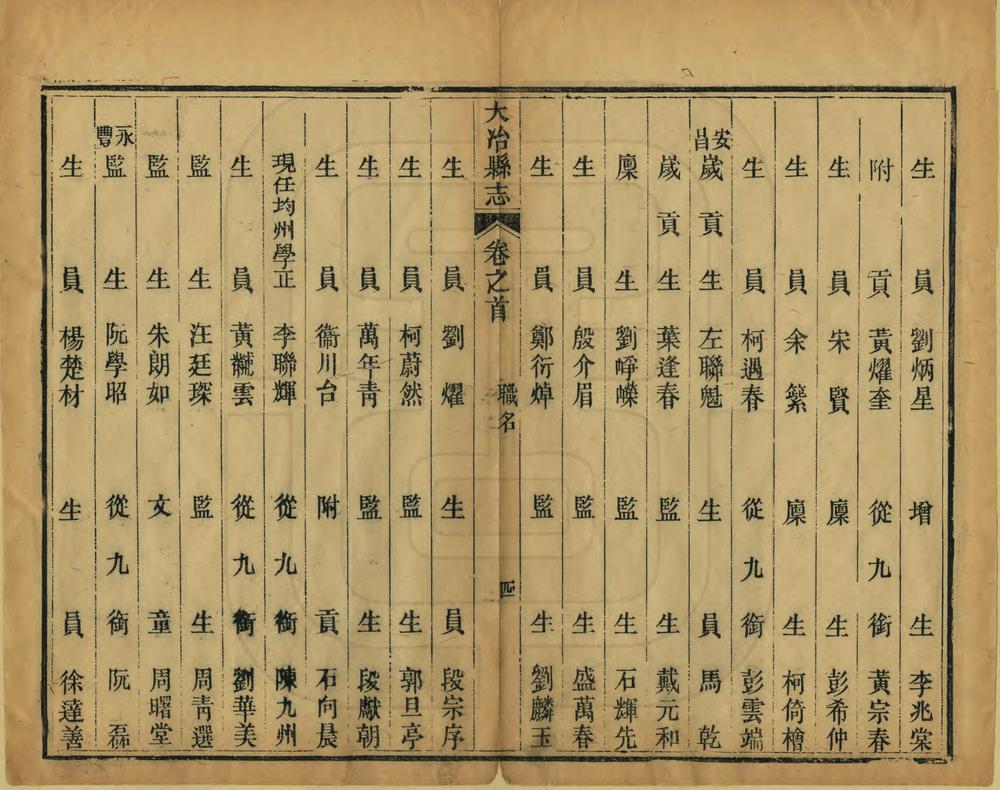 生員劉炳星 增生李兆棠
附貢黃燿奎 從九銜黃宗春
生員宋賢 廩生彭希仲
生員余縈 廩生柯倚檜
生員柯遇春 從九銜彭雲端
安昌歲貢生左聯魁 生員馬乾
歲貢生葉逢春 監生戴元和
廩生劉崢嶸 監生石輝先
生員殷介眉 監生盛萬春
生員鄭衍焯 監生劉麟玉
大冶縣志 卷之首 職名 四
生員劉燿 生員段宗序
生員柯蔚然 監生郭旦亭
生員萬年青 監生段獻朝
生員衞川台 附貢石向晨
現任均州學正李聯輝 從九銜陳九州
生員黃黻雲 從九銜劉華美
監生汪廷琛 監生周青選
監生朱朗如 文童周曙堂
永豐監生阮學昭 從九銜阮磊
生員楊楚材 生員徐達善